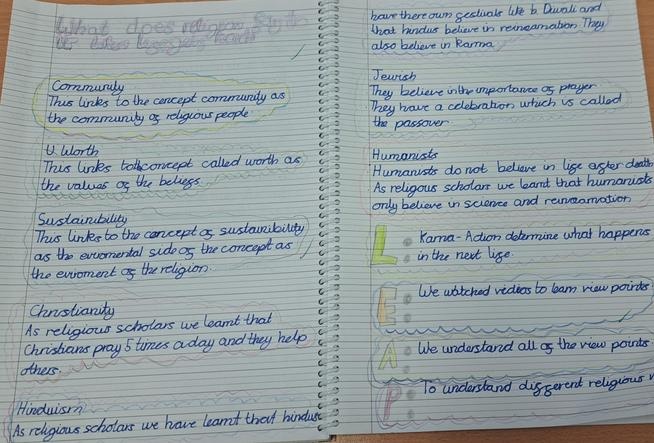 What does religion
Community
This links to the concept community as
the community of religious people.
U. Worth
This links to th concept called worth as
the values of the beliefs.
Sustainibility
This links to the concept of sustainibility
as the eviromental side of the concept as
the eviroment of the religion.
Christianity
As religious scholars we learnt that
Christians pray 5 times a day and they help
others.
Hinduism
As religious scholars we have learnt that hindus
have there own festivals like b Diwali and
that hindus believe in reincarnation. They
also believe in Karma.
Jewish
They believe in the importance of prayer
They have a celebration which is called
the passover
Humanists
Humanists do not believe in life after death
As religious scholars we learnt that humanists
only believe in science and reincarnation
L : Karna - Action determine what happens
in the next life.
E : We watched videos to learn view points
A : We understand all of the view points
P : To understand different religious